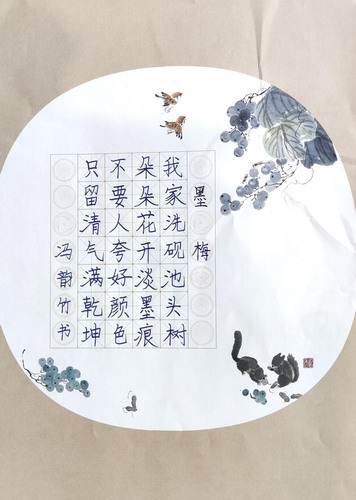 墨梅
我家洗砚池头树
朵朵花开淡墨痕
不要人夸好颜色
只留清气满乾坤
冯韵竹书